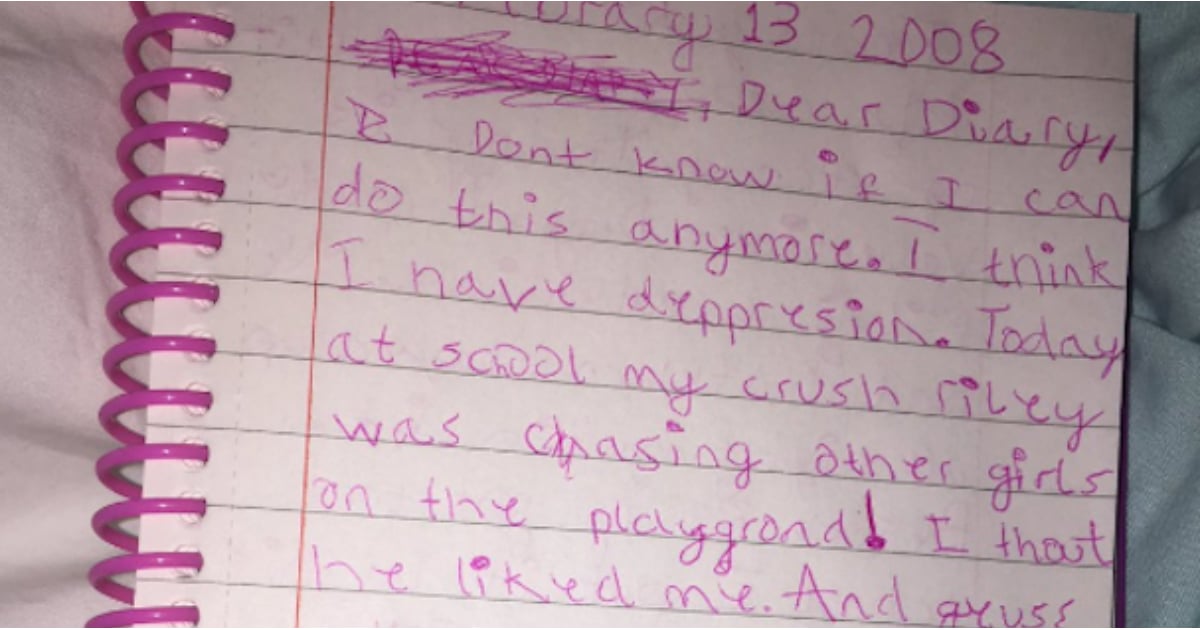 13 2008
Dear Diary,
I Dont know if I can
do this anymore. I think
I have deppresion. Today
at school my crush riley
was chasing other girls
on the playggrond! I thot
he liked me. And geuss